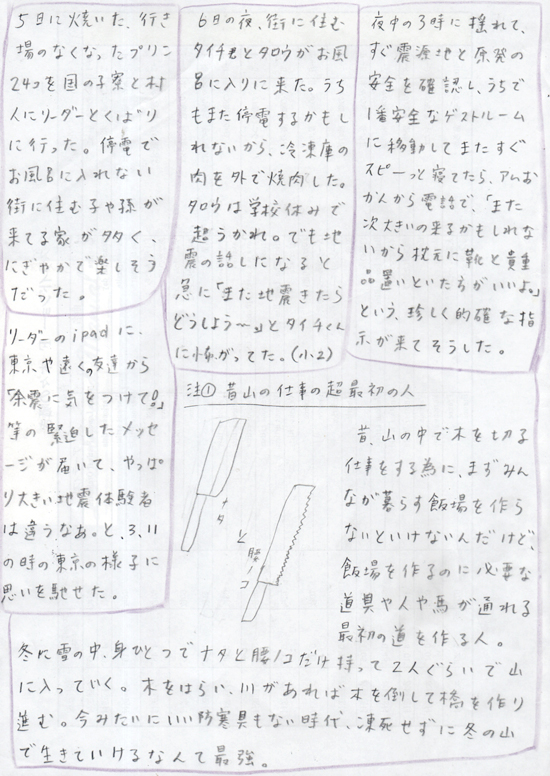 5日に焼いた、行き
場のなくなったプリン
24コを国の子寮と村
人にリーダーとくばり
に行った。停電で
お風呂に入れない
街に住む子や孫が
来てる家が多く、
にぎやかで楽しそう
だった。
リーダーのipadに、
東京や遠くの友達から
「余震に気をつけて!」
等の緊迫したメッセ
ージが届いて、やっぱ
り大きい地震体験者
は違うなあ。と、3,11
の時の東京の様子に
思いを馳せた。
6日の夜、街に住む
タイチ君とタロウがお風
呂に入りに来た。うち
もまた停電するかもし
れないから、冷凍庫の
肉を外で焼肉した。
タロウは学校休みで
超うかれ。でも地
震の話しになると
急に「また地震きたら
どうしよう〜」とタイチくん
に怖がってた。(小2)
夜中の3時に揺れて、
すぐ震源地と原発の
安全を確認し、うちで
1番安全なゲストルーム
に移動してまたすぐ
スピーっと寝てたら、アムお
かんから電話で、「また
次大きいの来るかもしれな
いから枕元に靴と貴重
品置いといたちがいいよ。」
という、珍しく的確な指
示が来てそうした。
注① 昔山の仕事の超最初の人
ナタ
と
腰ノコ
昔、山の中で木を切る
仕事をする為に、まずみん
なが暮らす飯場を作ら
ないといけないんだけど、
飯場を作るのに必要な
道具や人や馬が通れる
最初の道を作る人。
冬に雪の中、身ひとつでナタと腰ノコだけ持って2人ぐらいで山
に入っていく。木をはらい、川があれば木を倒して橋を作り
進む。今みたいにいい防寒具もない時代、凍死せずに冬の山
で生きていけるなんて最強。